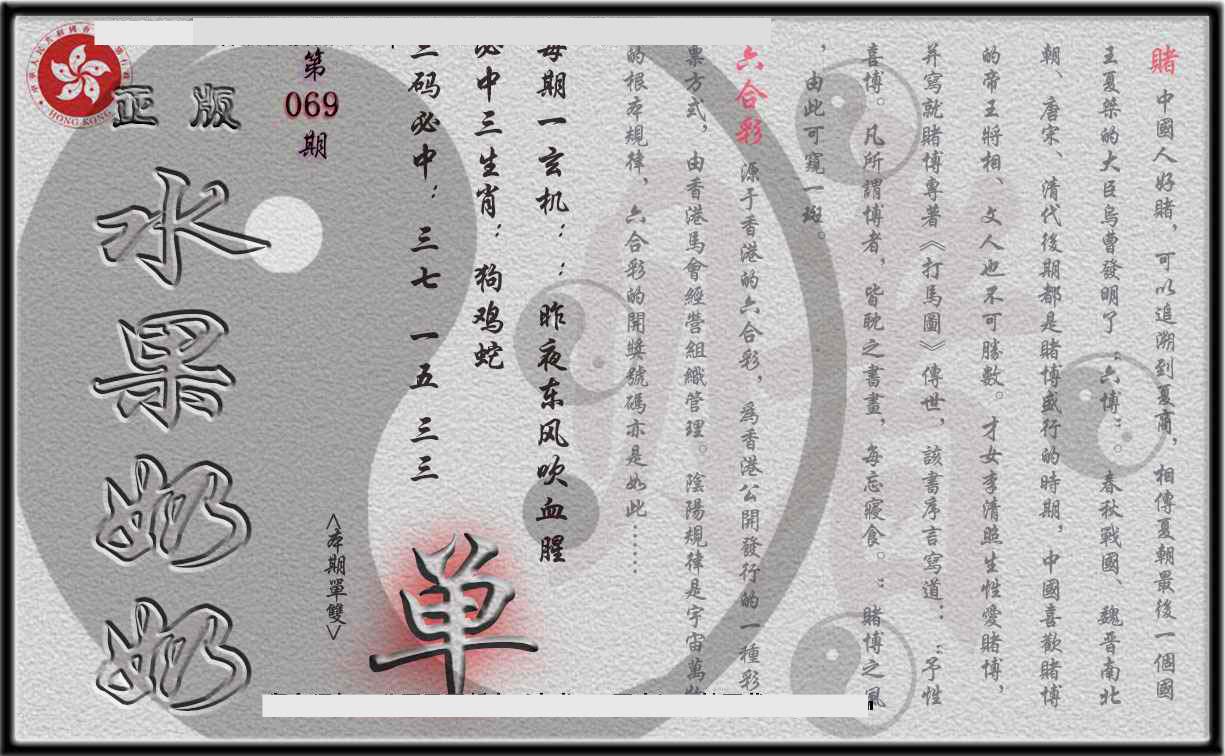 賭 中國人好賭，可以追溯到夏商，相傳夏朝最後一個國
王夏桀的大臣烏曹發明了“六博”。春秋戰國、魏晉南北
朝、唐宋、清代後期都是賭博盛行的時期，中國喜歡賭博
的帝王將相、文人也不可勝數。才女李清照生性愛賭博，
并寫就賭博專著《打馬圖》傳世，該書序言寫道：“予性
喜博。凡所謂博者，皆耽之晝畫，每忘寢食。”賭博之風
，由此可窺一斑。
六合彩 源于香港的六合彩，為香港公開發行的一種彩
票方式，由香港馬會經營組織管理。陰陽規律是宇宙萬物
的根本規律，六合彩的開獎號碼亦是如此……
每期一玄机：：昨夜东风吹血腥
必中三生肖：狗鸡蛇
三码必中：三七 一五 三三
第
069
期
<本期單雙>
单
正版
水果奶奶
HONG KONG